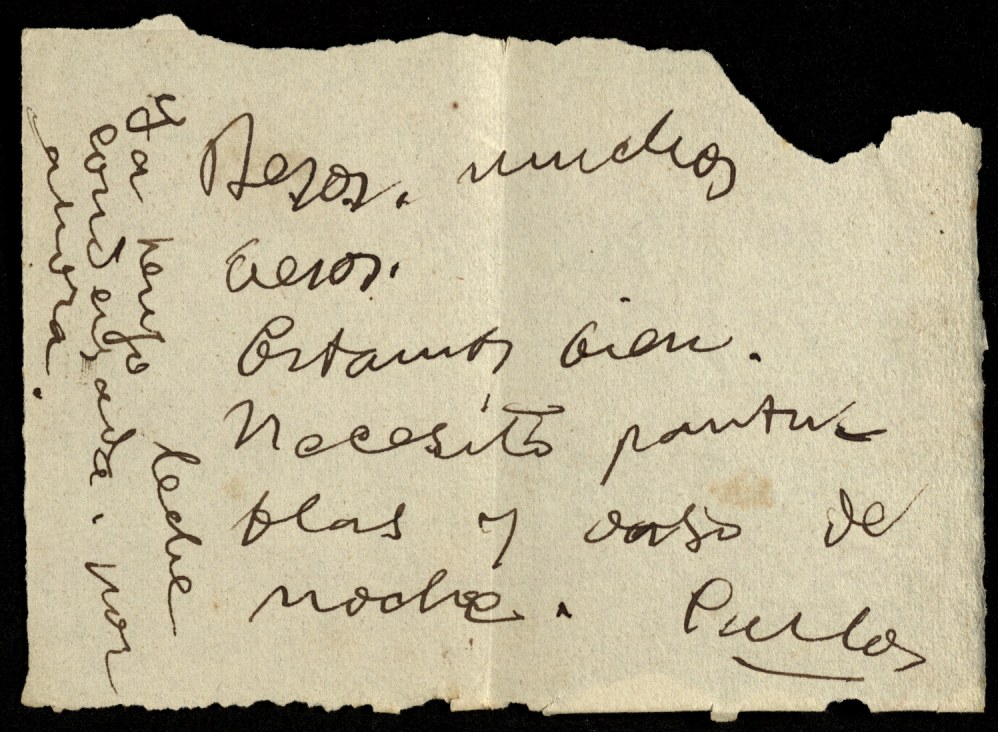 Besos, muchos
besos.
Estamos bien.
Necesito pantu-
flas y vaso de
noche.
Carlos
Ya tengo leche
condensada, por
ahora.